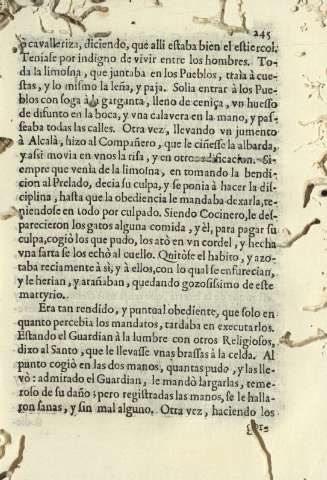 245
ò cavalleriza, diciendo, que alli estaba bien el estiercol.
Teniase por indigno de vivir entre los hombres. To-
da la limosna, que juntaba en los Pueblos, traìa à cues-
tas, y lo mismo la leña, y paja. Solia entrar à los Pue-
blos con soga à la garganta, lleno de ceniça, vn huesso
de difunto en la boca, y vna calavera en la mano, y pas-
seaba todas las calles. Otra vez, llevando vn jumento
à Alcalà, hizo al Compañero, que le ciñesse la albarda,
y assi movia en vnos la risa, y en otros edificacion. Siem-
pre que venia de la limosna, en tomando la bendi-
cion al Prelado, decia su culpa, y se ponia à hacer la dis-
ciplina, hasta que la obediencia le mandaba dexarla, te-
niendose en todo por culpado. Siendo Cocinero, le des-
parecieron los gatos alguna comida, y èl, para pagar su
culpa, cogiò los que pudo, los atò en vn cordel, y hecha
vna sarta se los echò al cuello. Quitòse el habito, y azo-
taba reciamente à sì, y à ellos, con lo qual se enfurecian,
y le herian, y arañaban, quedando gozosissimo de este
martyrio.
Era tan rendido, y puntual obediente, que solo en
quanto percebia los mandatos, tardaba en executarlos.
Estando el Guardian à la lumbre con otros Religiosos,
dixo al Santo, que le llevasse vnas brassas à la celda. Al
punto cogiò en las dos manos, quantas pudo, y las lle-
vò: admirado el Guardian, le mandò largarlas, teme-
roso de su daño; pero registradas las manos, se le halla-
ron sanas, y sin mal alguno. Otra vez, haciendo los